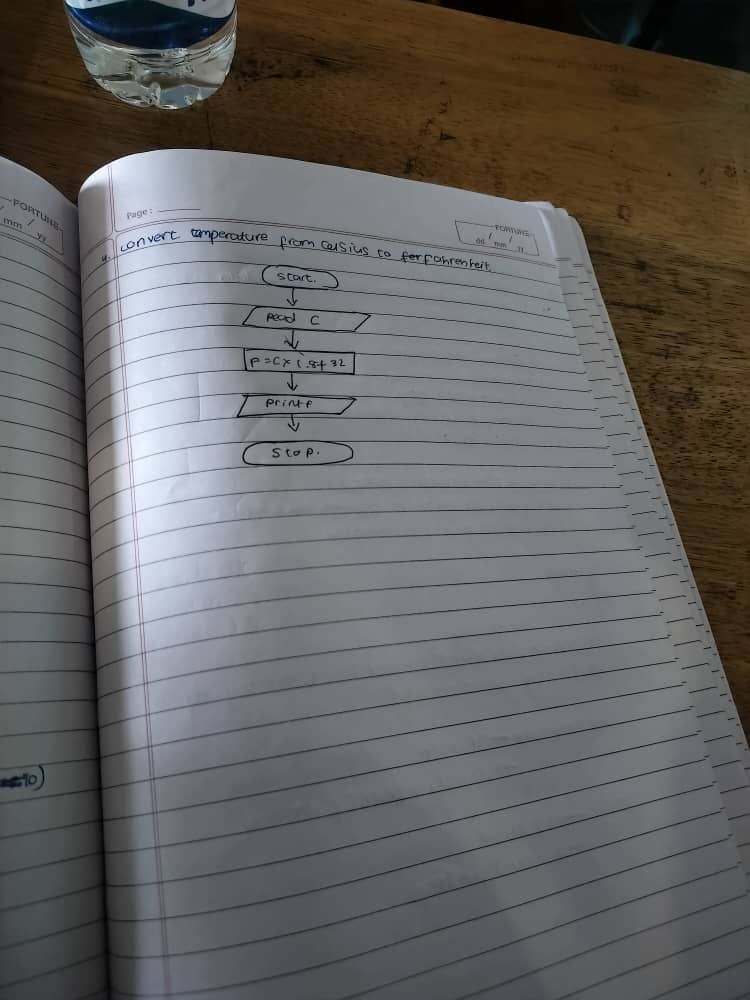 FORTUNE
mm / yy
Page:
FORTUNE
dd / mm / yy
4. convert temperature from celsius to ferfahrenheit
start.
Read C
F = C × 1.8 + 32
print F
stop.